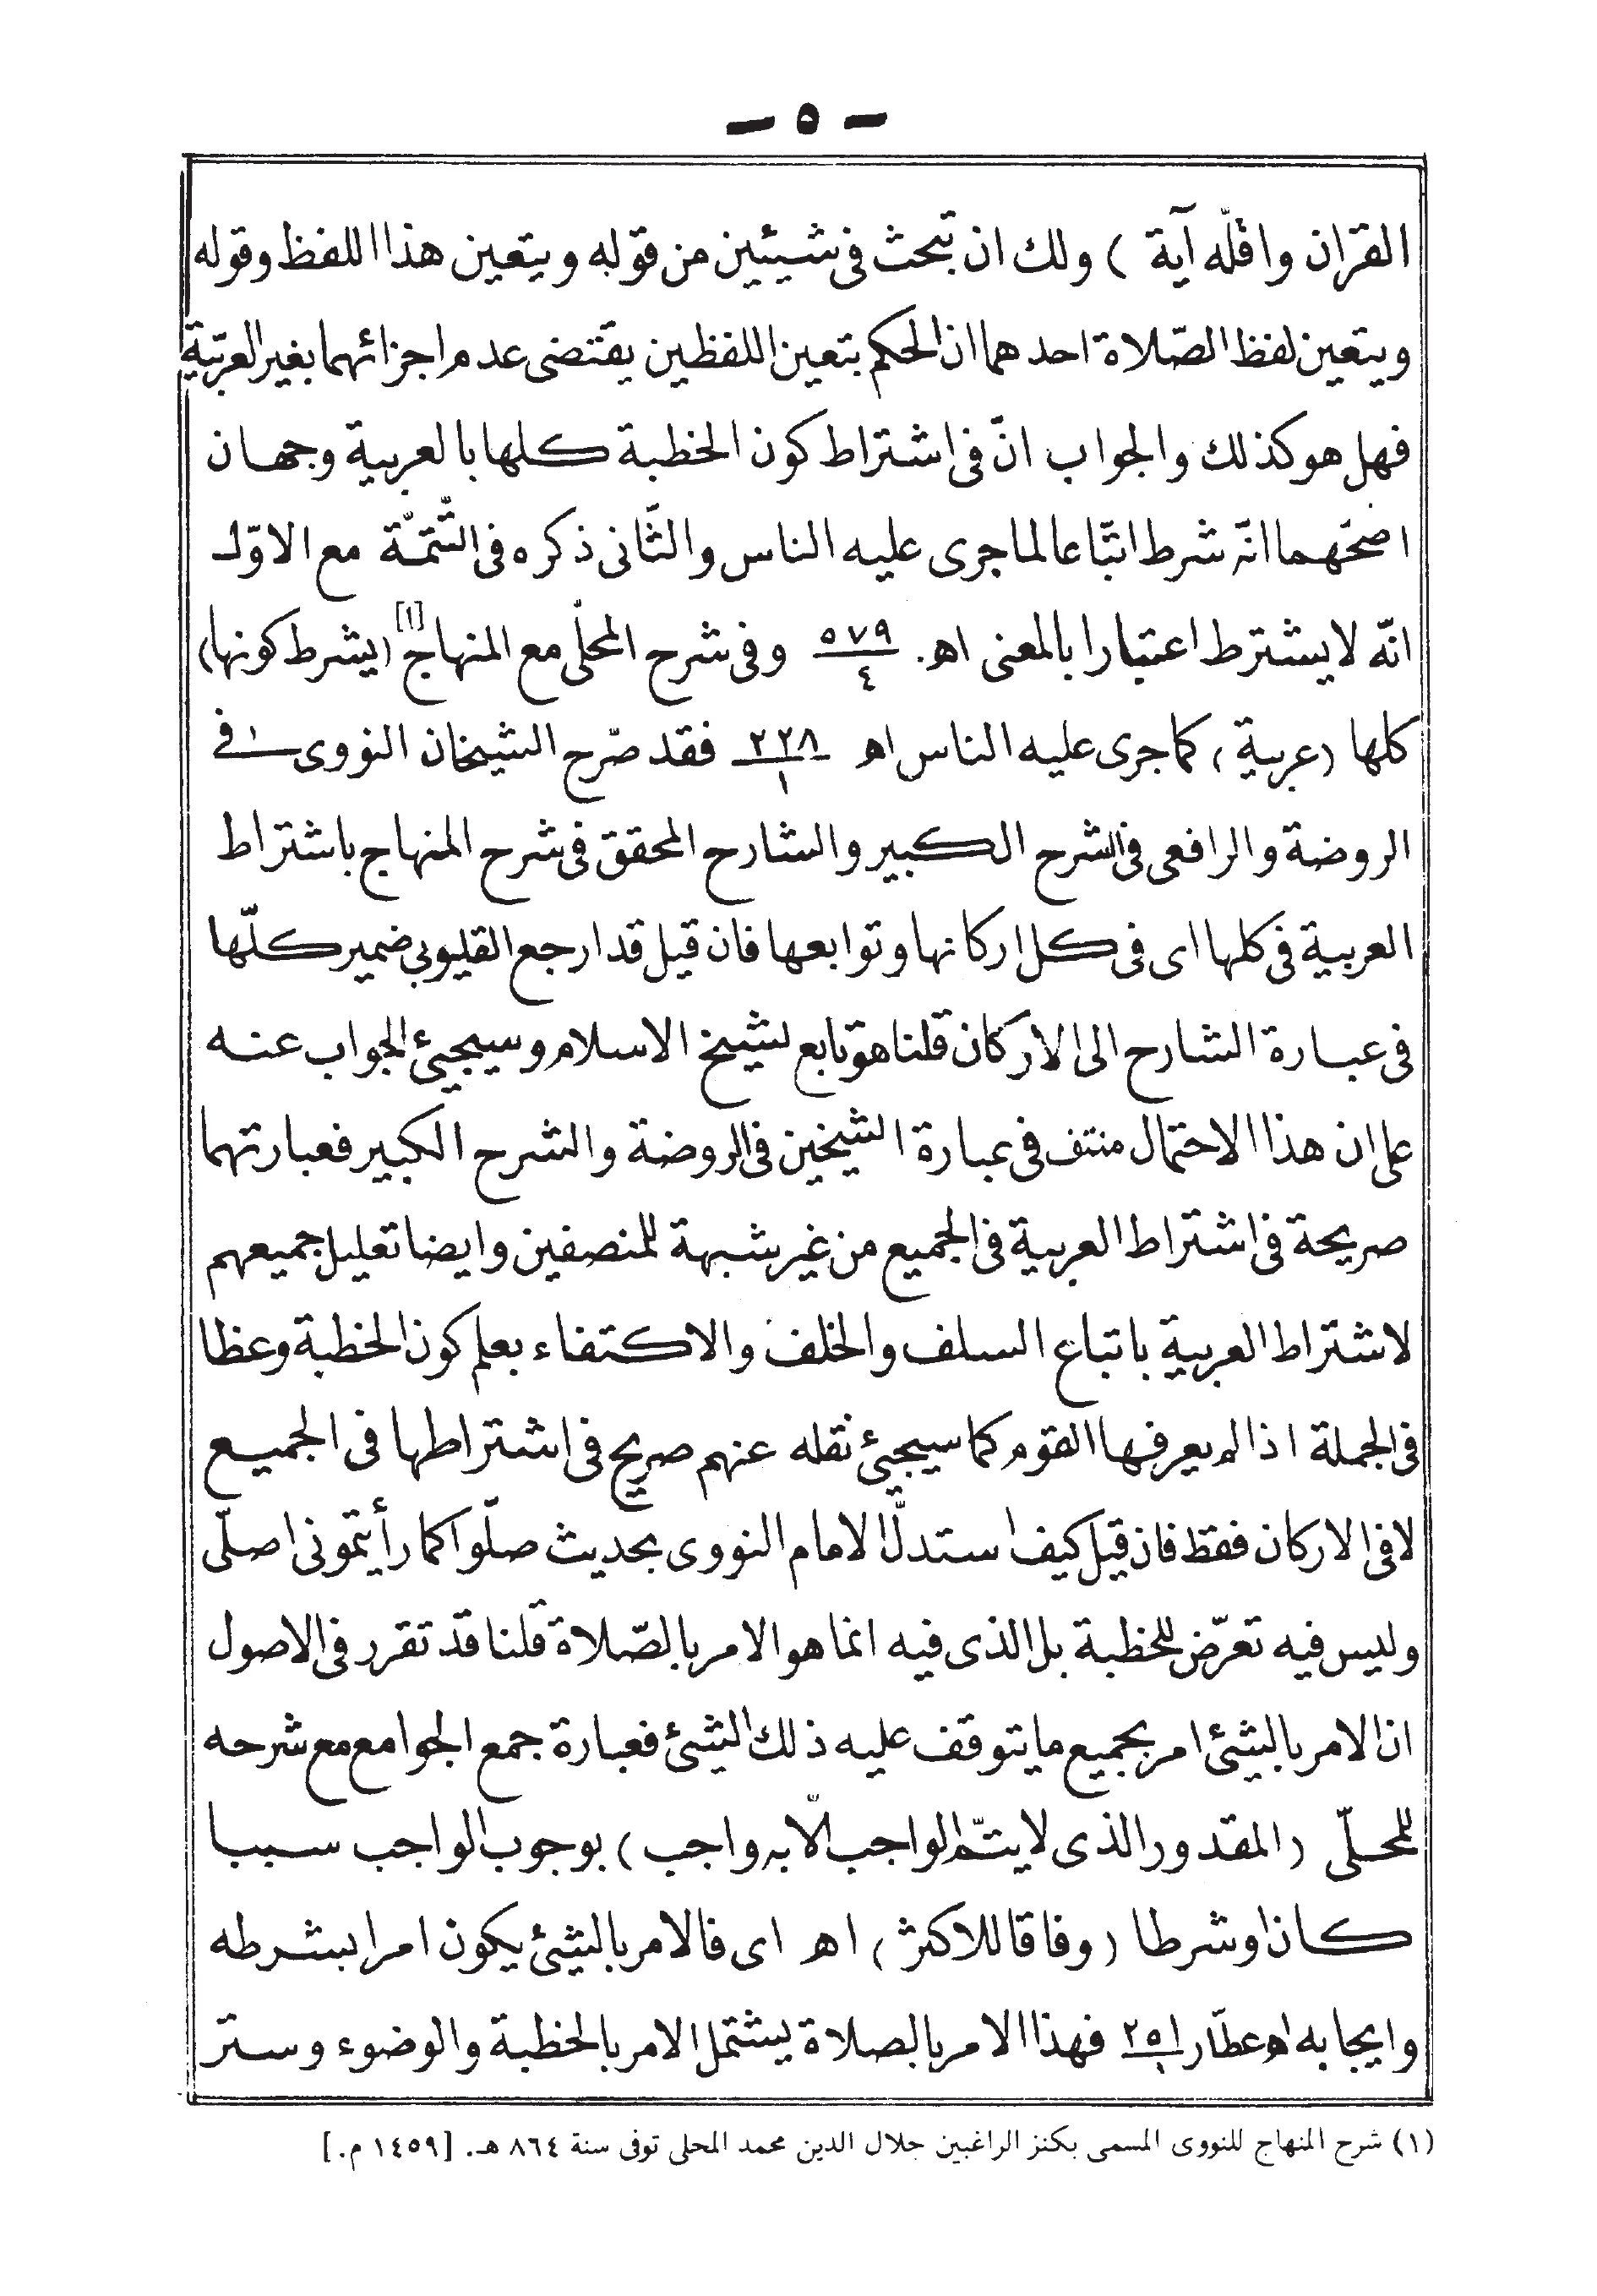 — ٥ —
القرآن واقلّه آية ) ولك ان تبحث فى شيئين من قوله ويتعين هذا اللفظ وقوله
ويتعين لفظ الصّلاة احدهما ان الحكم بتعين اللفظين يقتضى عدم اجزائهما بغير العربّية
فهل هو كذلك والجواب انّ فى اشتراط كون الخطبة كلها بالعربية وجهان
اصّحهما انّه شرط اتّباعا لما جرى عليه الناس والثّانى ذكره فى التّتمّة مع الاوّل
انّه لا يشترط اعتبارا بالمعنى اهـ. ٥٧٩/٤ وفى شرح المحلّى مع المنهاج [١] (يشرط كونها)
كلها (عربية) كما جرى عليه الناس اهـ ٢٢٨/١ فقد صرّح الشيخان النووى فى
الروضة والرافعى فى الشرح الكبير والشارح المحقق فى شرح المنهاج باشتراط
العربية فى كلها اى فى كل اركانها وتوابعها فان قيل قد ارجع القليوبى ضمير كلّها
فى عبارة الشارح الى الاركان قلنا هو تابع لشيخ الاسلام وسيجيئ الجواب عنه
على ان هذا الاحتمال منتف فى عبارة الشيخين فى الروضة والشرح الكبير فعبارتهما
صريحة فى اشتراط العربية فى الجميع من غير شبهة للمنصفين وايضا تعليل جميعهم
لاشتراط العربية باتباع السلف والخلف والاكتفاء بعلم كون الخطبة وعظا
فى الجملة اذا لم يعرفها القوم كما سيجيئ نقله عنهم صريح فى اشتراطها فى الجميع
لا فى الاركان فقط فان قيل كيف استدلّ الامام النووى بحديث صلّوا كما رأيتمونى اصلّى
وليس فيه تعرّض للخطبة بل الذى فيه انما هو الامر بالصّلاة قلنا قد تقرر فى الاصول
ان الامر بالشئ امر بجميع ما يتوقف عليه ذلك الشئ فعبارة جمع الجوامع مع شرحه
للمحلّى (المقدور الذى لا يتمّ الواجب الّا به واجب) بوجوب الواجب سببا
كان او شرطا (وفاقا للاكثر) اهـ اى فالامر بالشئ يكون امرا بشرطه
وايجابه اهـ عطّار ٢٥١/١ فهذا الامر بالصلاة يشتمل الامر بالخطبة والوضوء وستر
(١) شرح المنهاج للنووى المسمى بكنز الراغبين جلال الدين محمد المحلى توفى سنة ٨٦٤ هـ. [١٤٥٩ م.]